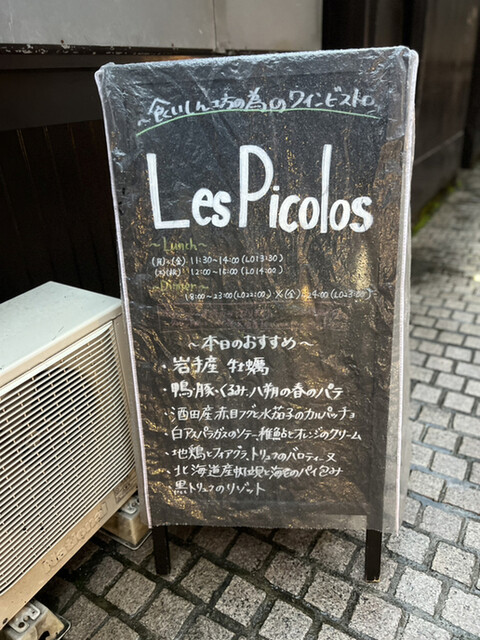 ~食いしん坊の為のワインビストロ~
Les Picolos
~Lunch~
(月)-(金) 11:30~14:00(LO13:30)
12:00~15:00(LO14:00)
~Dinner~
18:00~23:00(LO22:00) ※(金) 24:00(LO23:00)
~本日のおすすめ~
・岩手産 牡蠣
・鴨・豚・くるみ、八朔の春のパテ
・酒田産赤目フグと水茄子のカルパッチョ
・白アスパラガスのソテー、稚鮎とオレンジのクリーム
・地鶏とフォアグラ、トリュフのバロティーヌ
・北海道産帆立貝と海老のパイ包み
黒トリュフのリゾット